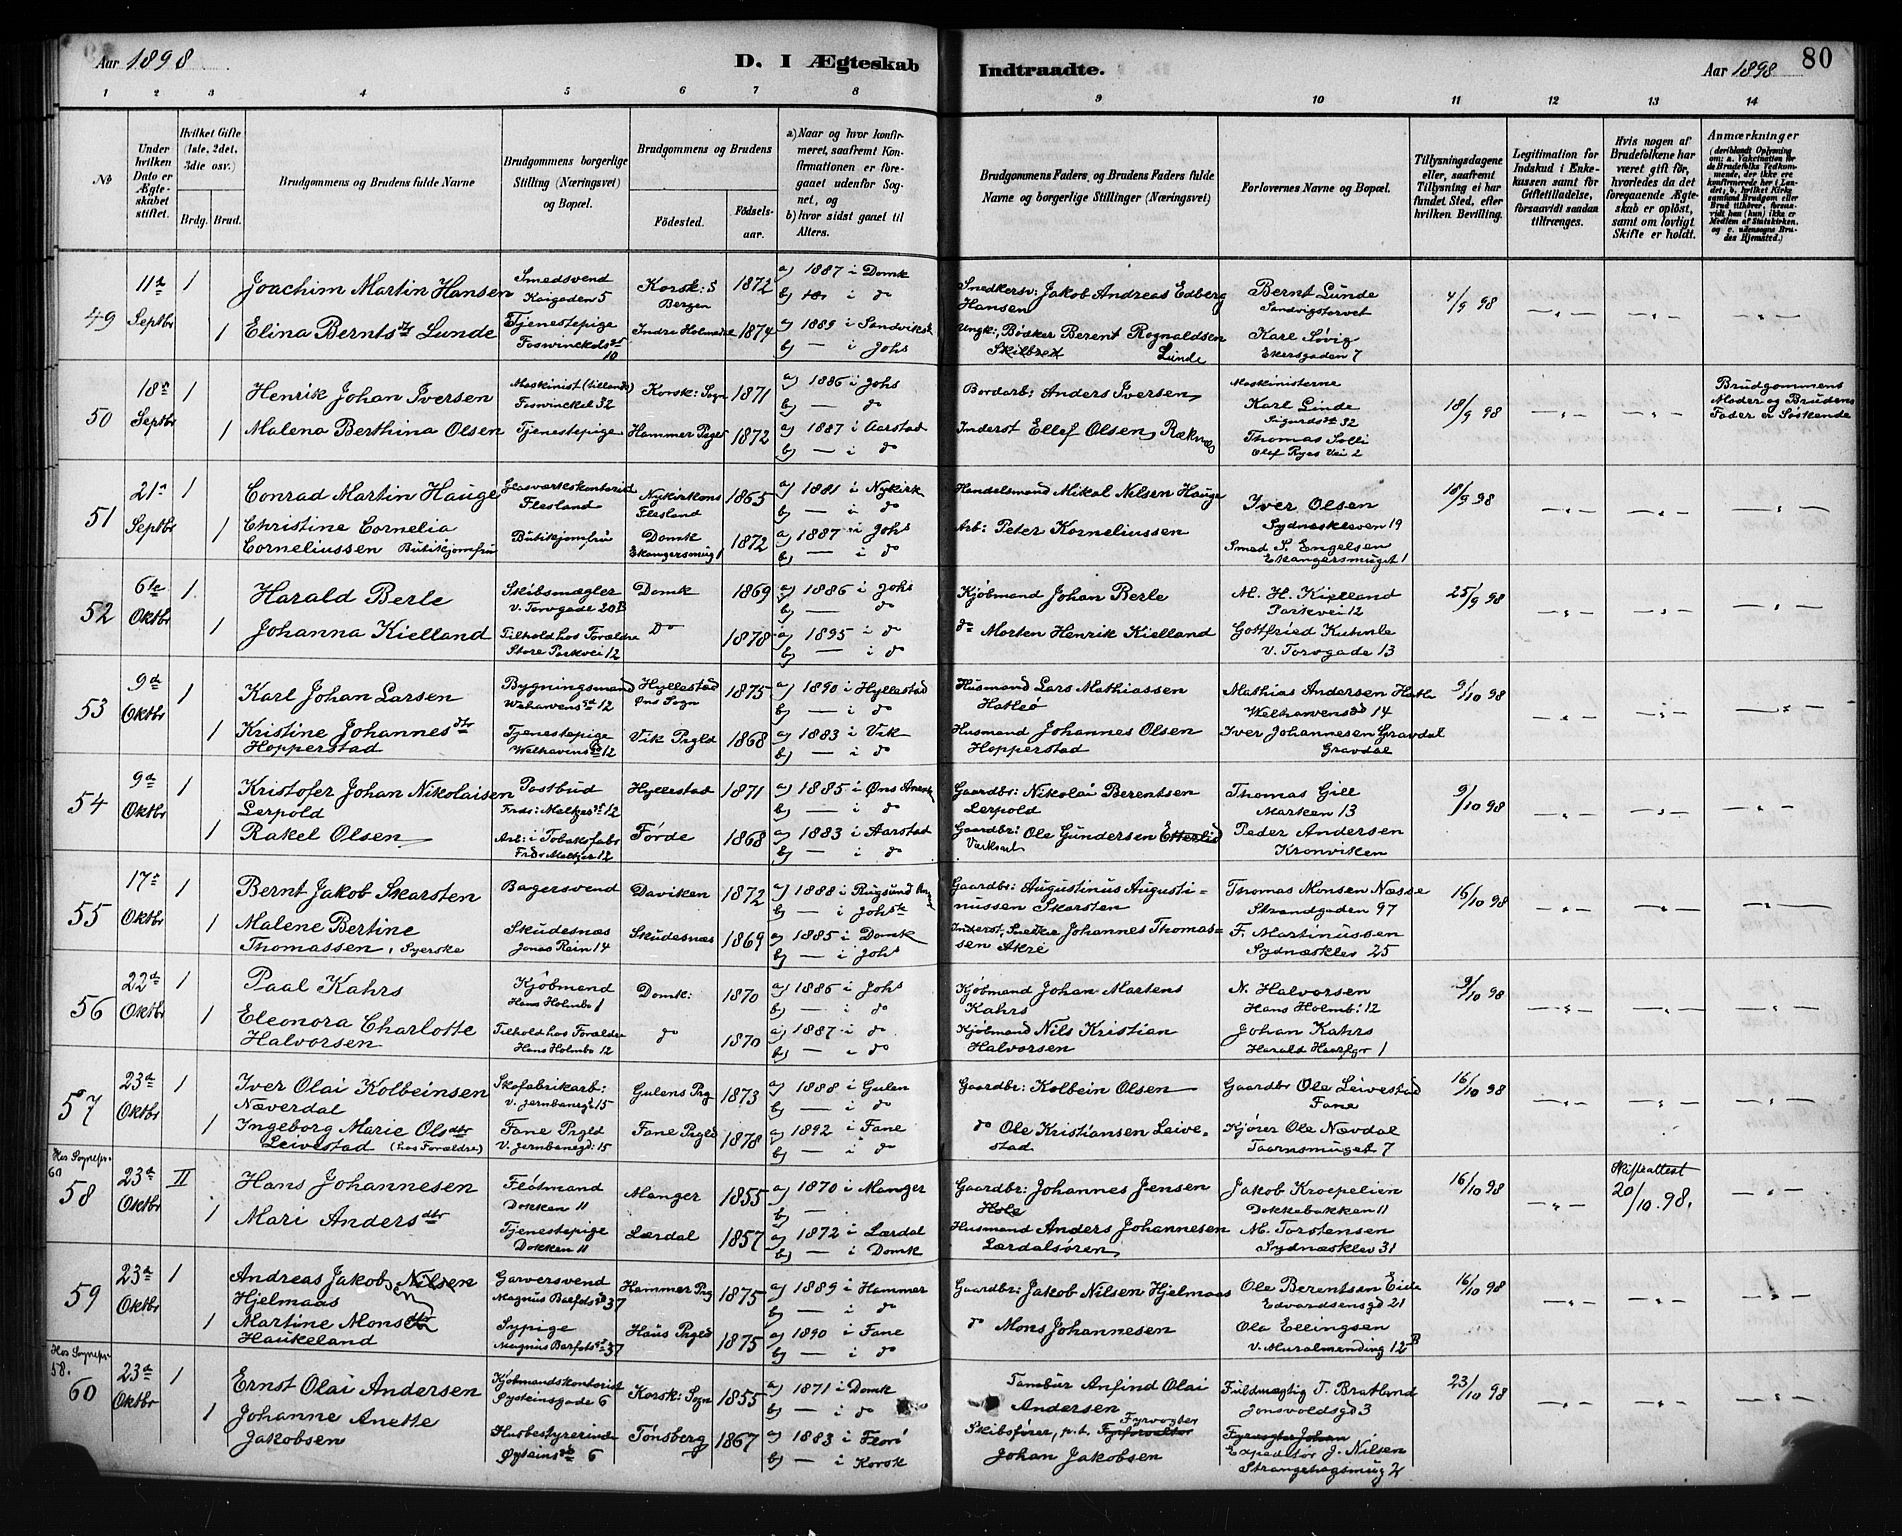 Aar 1898
D. I Ægteskab Indtraadte.
Aar 1898
80
1 2 3 4 5 6 7 8 9 10 11 12 13 14
№
Under hvilken Dato er Ægteskabet stiftet.
Hvilket Gifte (1ste, 2det, 3die osv.)
Brdg. Brud.
Brudgommens og Brudens fulde Navne
Brudgommens borgerlige Stilling (Næringsvei) og Bopæl.
Brudgommens og Brudens
Fødested.
Fødselsaar.
a) Naar og hvor konfirmeret, saafremt Konfirmationen er foregaaet udenfor Sognet, og
b) hvor sidst gaaet til Alters.
Brudgommens Faders og Brudens Faders fulde Navne og borgerlige Stillinger (Næringsvei)
Forlovernes Navne og Bopæl.
Tillysningsdagene eller, saafremt Tillysning ei har fundet Sted, efter hvilken Bevilling.
Legitimation for Indskud i Enkekassen samt for Giftetilladelse, forsaavidt saadan tiltrænges.
Hvis nogen af Brudefolkene har været gift før, hvorledes da det foregaaende Ægteskab er opløst, samt om lovligt Skifte er holdt.
Anmærkninger
49
11te Septbr
1
Joachim Martin Hansen
Smedsvend
Kaigaden 5
Korsk: S
Bergen
1872
a) 1887 i Domk
b) i do
Snedkersv: Jakob Andreas Edberg
Hansen
Bernt Lunde
Sandvigstorvet
4/9 98
1
Elina Bernts dtr Lunde
Tjenestepige
Foswinckels gd 10
Indre Holmedal
1874
a) 1889 i Sandviksk
b) — i Johs
Ungk: Bødker Berent Rognaldsen
Skilbred Lunde
Karl Løvig
Ekersgaden 7
50
18de Septbr
1
Henrik Johan Iversen
Maskinist (tillands)
Foswinckel 32
Korsk: Sogn
1871
a) 1886 i Johs
b) — do
Bordarb: Anders Iversen
Maskinisterne
Karl Linde
Sigurdsgt 32
18/9 98
Brudgommens
Moder og Brudens
Fader er Søskende
1
Malena Berthina Olsen
Tjenestepige
Hammer Prgld
1872
a) 1887 i Aarstad
b) — i do
Inderst Ellef Olsen Røknæs
Thomas Solli
Olaf Ryes Vei 2
51
21de Septbr
1
Conrad Martin Hauge
Flesland
Nykirkens
Flesland
1865
a) 1881 i Nykirk
b) — i do
Handelsmand Mikal Nilsen Hauge
Iver Olsen
Sydneskleven 19
18/9 98
1
Christine Cornelia
Corneliussen Butikjomfru
Butikjomfru
Domk
Ekangersmug 1
1872
a) 1887 i Johs
b) — i do
Arb: Peter Korneliussen
Smed S. Engelsen
Ekangersmuget 1
52
6te Oktbr
1
Harald Berle
Skibsmægler
V. Torvgade 20B
Domk
1869
a) 1886 i Johs
b) — do
Kjøbmand Johan Berle
M. H. Kielland
Parkvei 12
25/9 98
1
Johanna Kielland
Tilhold hos Forældre
Store Parkvei 12
Do
1878
a) 1895 i do
b) — i do
do Morten Henrik Kielland
Gottfried Kuhnle
V. Torvgade 13
53
9de Oktbr
1
Karl Johan Larsen
Bygningsmand
Welhavens gd 12
Hyllestad
Øns Sogn
1875
a) 1890 i Hyllestad
b) — i do
Husmand Lars Mathiassen
Hatleø
Mathias Andersen Hatle
Welhavens gd 14
9/10 98
1
Kristine Johannes dtr
Hopperstad
Tjenestepige
Welhavens gd 12
Vik Prgld
1868
a) 1883 i Vik
b) — i do
Husmand Johannes Olsen
Hopperstad
Iver Johannesen Gravdal
Gravdal
54
9de Oktbr
1
Kristofer Johan Nikolaisen
Lerpold
Postbud
Frds: Meltzers gt 12
Hyllestad
1871
a) 1885 i Øns Anneks
b) — i do
Gaardbr: Nikolai Berentsen
Lerpold
Thomas Gill
Marken 13
9/10 98
1
Rakel Olsen
Arb: i Tobaksfabr
Frds Meltzer 12
Førde
1868
a) 1883 i Aarstad
b) — i do
Gaardbr: Ole Gundersen Etterlid
Peder Andersen
Kronviken
55
17de Oktbr
1
Bernt Jakob Skarsten
Bagersvend
Daviken
1872
a) 1888 i Rugsund
b) — i Johs k
Gaardbr: Augustinus Augusti-
nussen Skarsten
Thomas Monsen Næsse
Strandgaden 97
16/10 98
1
Malene Bertine
Thomassen, Syerske
Skudesnæs
Jonas Rein 14
Skudesnæs
1869
a) 1885 i Domk
b) — i Johs
Inderst, Snedker Johannes Thomas-
sen Akre
F. Martinussen
Sydnæsklev 25
56
22de Oktbr
1
Paal Kahrs
Kjøbmand
Hans Holmbo 1
Domk:
1870
a) 1886 i Johs
b) — i do
Kjøbmand Johan Martens
Kahrs
N. Halvorsen
Hans Holmb: 12
9/10 98
1
Eleonora Charlotte
Halvorsen
Tilhold hos Forældre
Hans Holmbo 12
do
1870
a) 1887 i do
b) — i do
Kjøbmand Nils Kristian
Halvorsen
Johan Kahrs
Harald Haarfgr 1
57
23de Oktbr
1
Iver Olai Kolbeinsen
Næverdal
Skofabrikarb:
V. Jernbanegt 15
Gulens Prg
1873
a) 1888 i Gulen
b) — i do
Gaardbr: Kolbein Olsen
Gaardbr Ole Leivestad
Fane
16/10 98
1
Ingeborg Marie Olsdtr
Leivestad (hos Forældre)
Fane Prgld
V. Jernbanegd: 15
Fane Prgld
1878
a) 1892 i Fane
b) — i do
do Ole Kristiansen Leive-
stad
Kjører Ole Nævdal
Taarnsmuget 7
Hos Sognepr.
60
58
23de Oktbr
II
Hans Johannesen
Feiomand
Dokken 11
Manger
1855
a) 1870 i Manger
b) —
Gaardbr: Johannes Jensen
Hole
Jakob Kroepelien
Dokkebakken 11
16/10 98
Skifteattest
20/10. 98.
1
Mari Andersdtr
Tjenestepige
Dokken 11
Lærdal
1857
a) 1872 i Lærdal
b) — i Domk
Husmand Anders Johannesen
Lærdalsøren
M. Torstensen
Sydnæsklev 31
59
23de Oktbr
1
Andreas Jakobsen Nilsen
Hjelmaas
Garversvend
Magnus Barfots gd 37
Hammer Prg
1875
a) 1889 i Hammer
b) — i do
Gaardbr: Jakob Nilsen Hjelmaas
Ole Berentsen Eide
Edvardsensgd 21
16/10 98
1
Martine Monsdtr
Haukeland
Sypige
Magnus Barfots gt 37
Haus Prgld
1875
a) 1890 i Fane
b) — i do
do Mons Johannesen
Ole Ellingsen
V. Muralmending 12B
Hos Sognepr.
58.
60
23de Oktbr
1
Ernst Olai Andersen
Kjøbmandskontorist
Øysteinsgade 6
Korsk: Sogn
1855
a) 1871 i Domk
b) — i do
Tambur Anfind Olai
Andersen
Fuldmægtig T. Bratland
Jonsvoldsgd 3
23/10 98
1
Johanne Anette
Jakobsen
Husbestyrerinde
Øysteins gd 6
Tønsberg
1867
a) 1883 i Florø
b) — i Korsk
Skibsfører, p.t. Fyrforvalter Fyrvogter
Johan Jakobsen
Fyrvogter Johan
Expeditør J. Nilsen
Strangehagsmug 2